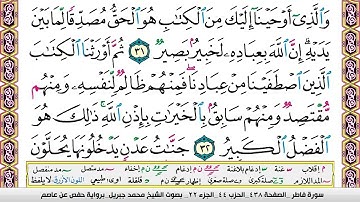 وَالَّذِي أَوْحَيْنَا إِلَيْكَ مِنَ الْكِتَابِ هُوَ الْحَقُّ مُصَدِّقًا لِّمَا بَيْنَ
يَدَيْهِ إِنَّ اللَّهَ بِعِبَادِهِ لَخَبِيرٌ بَصِيرٌ ٣١ ثُمَّ أَوْرَثْنَا الْكِتَابَ
الَّذِينَ اصْطَفَيْنَا مِنْ عِبَادِنَا فَمِنْهُمْ ظَالِمٌ لِّنَفْسِهِ وَمِنْهُم
مُّقْتَصِدٌ وَمِنْهُمْ سَابِقٌ بِالْخَيْرَاتِ بِإِذْنِ اللَّهِ ذَٰلِكَ هُوَ
الْفَضْلُ الْكَبِيرُ ٣٢ جَنَّاتُ عَدْنٍ يَدْخُلُونَهَا يُحَلَّوْنَ
سورة فاطر الصفحة ٤٣٨ الحزب ٤٤ الجزء ٢٢ بصوت الشيخ محمد جبريل برواية حفص عن عاصم